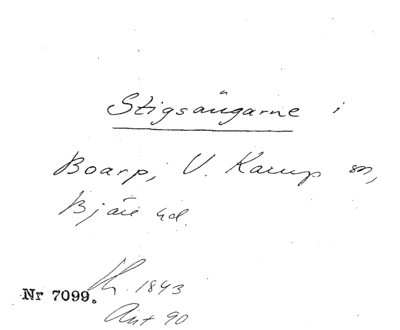 Stigsängarne i
Boarp, V. Karup sn,
Bjäre hd.
Nr 7099. 1843
Ant 90